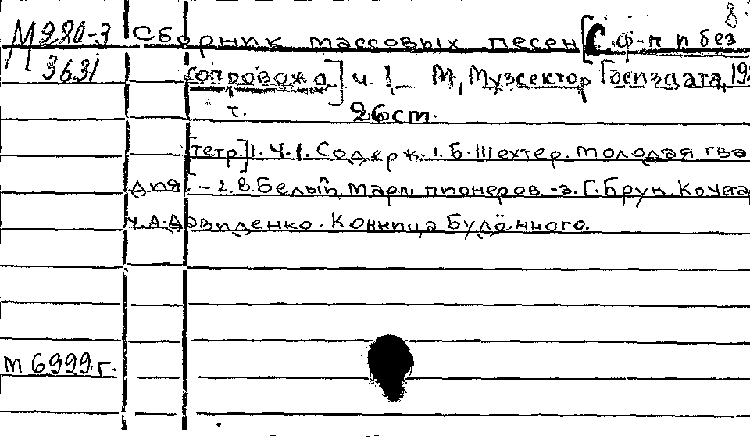 8.
М 980-3 Сборник массовых песен [С ф-п и без
3631 сопровожд.] ч. 1 М., Музсектор Госиздата, 19
т. 26 см.
[тетр] 1. Ч.1. Содерж. 1. Б. Шехтер. Молодая гва
дия. - 2. В. Белый. Марш пионеров. -3. Г. Брук.
4. А. Давиденко. Конница Будённого.
м 6999 г.